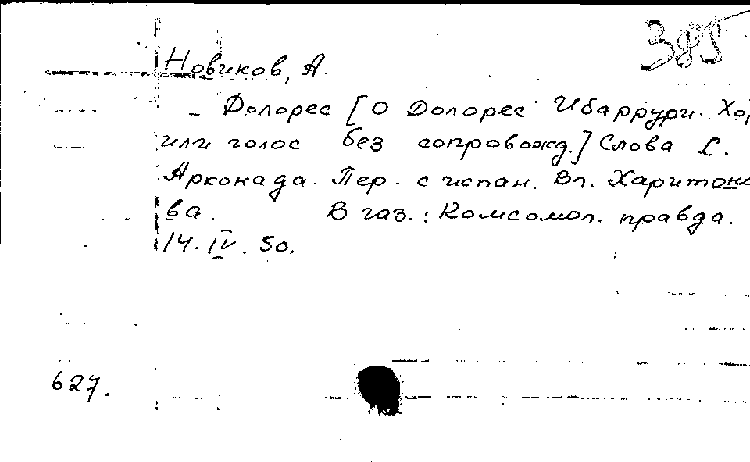 385
Новиков, А.
- Долорес [О Долорес Ибаррури. Хор
или голос без сопровожд.] Слова С.
Арконада. Пер. с испан. Вл. Харитоно
ва. В газ.: Комсомол. правда.
14. IV. 50.
627.